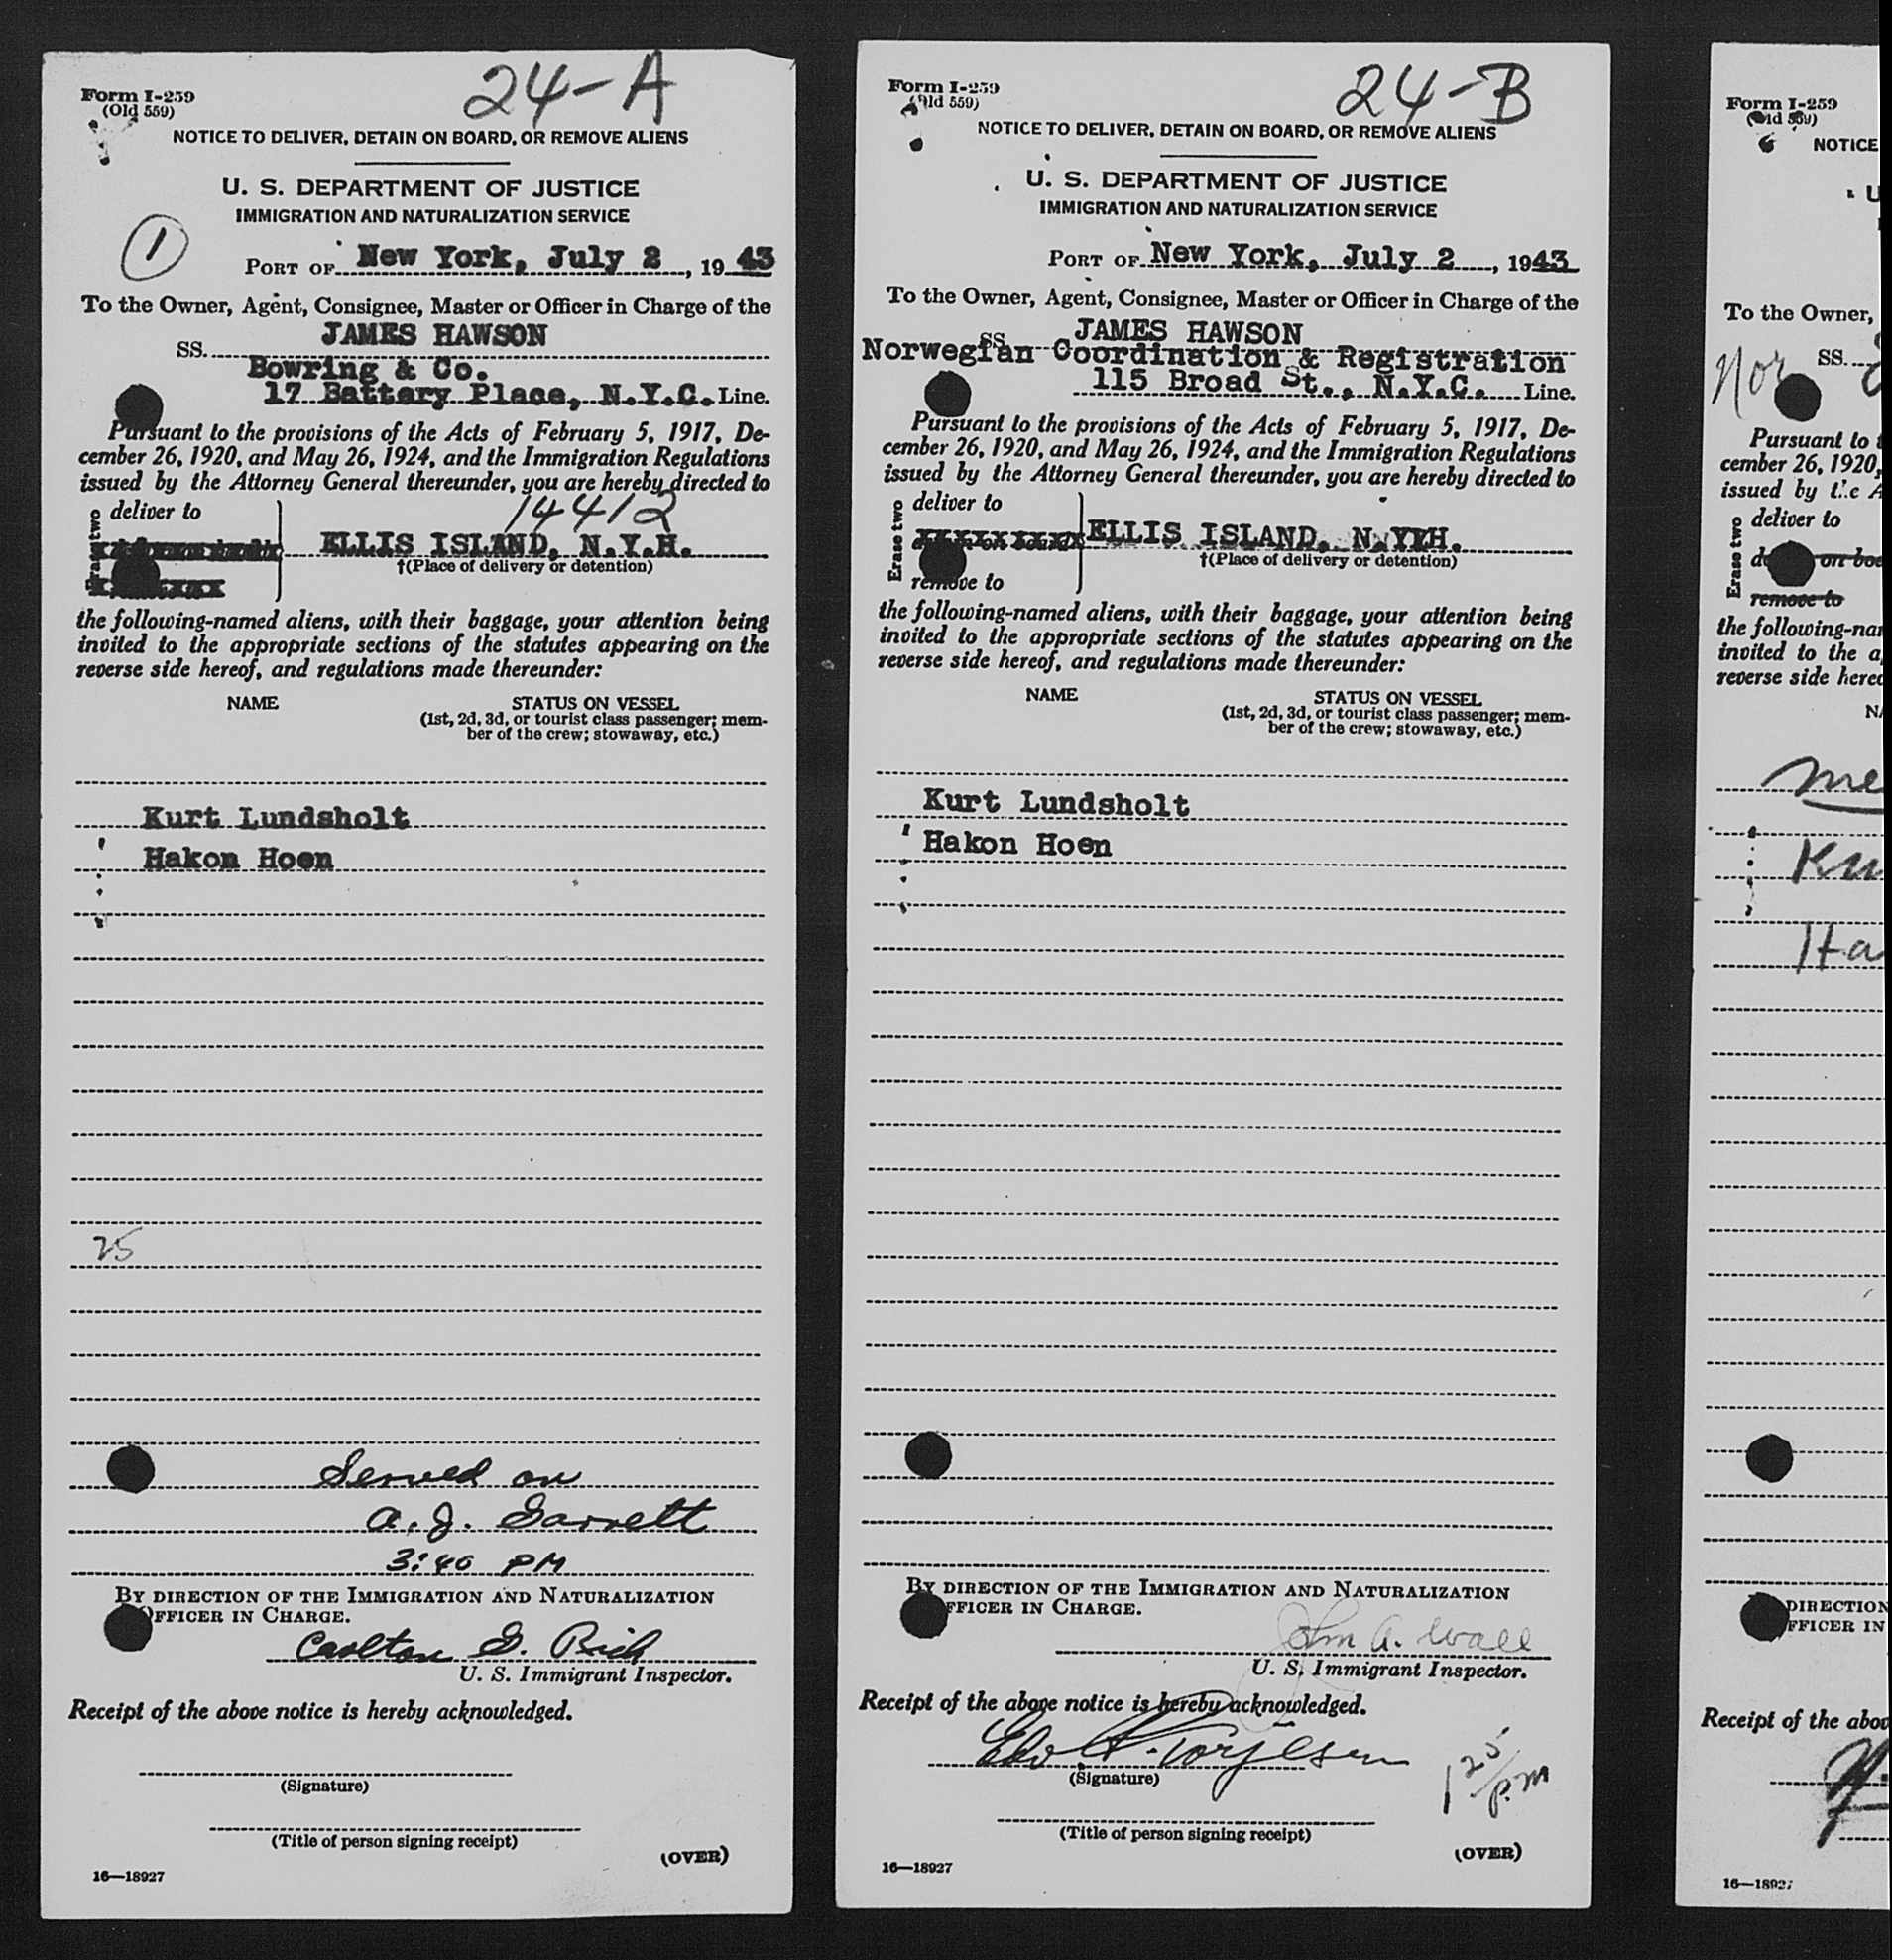 24-A
Form I-259
(Old 559)
NOTICE TO DELIVER, DETAIN ON BOARD, OR REMOVE ALIENS
U. S. DEPARTMENT OF JUSTICE
IMMIGRATION AND NATURALIZATION SERVICE
1
PORT OF New York, July 2, 1943
To the Owner, Agent, Consignee, Master or Officer in Charge of the
SS. JAMES HAWSON
Bowring & Co.
17 Battery Place, N.Y.C. Line.
Pursuant to the provisions of the Acts of February 5, 1917, De-
cember 26, 1920, and May 26, 1924, and the Immigration Regulations
issued by the Attorney General thereunder, you are hereby directed to
14412
Erase two
deliver to
ELLIS ISLAND, N.Y.H.
†(Place of delivery or detention)
the following-named aliens, with their baggage, your attention being
invited to the appropriate sections of the statutes appearing on the
reverse side hereof, and regulations made thereunder:
NAME
STATUS ON VESSEL
(1st, 2d, 3d, or tourist class passenger; mem-
ber of the crew; stowaway, etc.)
Kurt Lundsholt
Hakon Hoen
25
Served on
A. J. Garrett
3:40 PM
BY DIRECTION OF THE IMMIGRATION AND NATURALIZATION
OFFICER IN CHARGE.
Carlton G. Rich
U. S. Immigrant Inspector.
Receipt of the above notice is hereby acknowledged.
(Signature)
(Title of person signing receipt)
(OVER)
16—18927
24-B
Form I-259
(Old 559)
NOTICE TO DELIVER, DETAIN ON BOARD, OR REMOVE ALIENS
U. S. DEPARTMENT OF JUSTICE
IMMIGRATION AND NATURALIZATION SERVICE
PORT OF New York, July 2, 1943
To the Owner, Agent, Consignee, Master or Officer in Charge of the
SS. JAMES HAWSON
Norwegian Coordination & Registration
115 Broad St., N.Y.C. Line.
Pursuant to the provisions of the Acts of February 5, 1917, De-
cember 26, 1920, and May 26, 1924, and the Immigration Regulations
issued by the Attorney General thereunder, you are hereby directed to
Erase two
deliver to
ELLIS ISLAND, N.Y.H.
†(Place of delivery or detention)
remove to
the following-named aliens, with their baggage, your attention being
invited to the appropriate sections of the statutes appearing on the
reverse side hereof, and regulations made thereunder:
NAME
STATUS ON VESSEL
(1st, 2d, 3d, or tourist class passenger; mem-
ber of the crew; stowaway, etc.)
Kurt Lundsholt
Hakon Hoen
BY DIRECTION OF THE IMMIGRATION AND NATURALIZATION
OFFICER IN CHARGE.
John A. Wall
U. S. Immigrant Inspector.
Receipt of the above notice is hereby acknowledged.
Torjesen
1 25/p.m
(Signature)
(Title of person signing receipt)
(OVER)
16—18927
Form I-259
(Old 559)
NOTICE
U
To the Owner,
Nor SS.
Pursuant to
cember 26, 1920,
issued by the A
Erase two
deliver to
on boa
remove to
the following-na
invited to the a
reverse side here
NA
me
Ku
Ha
DIRECTION
OFFICER IN
Receipt of the abov
16—18927